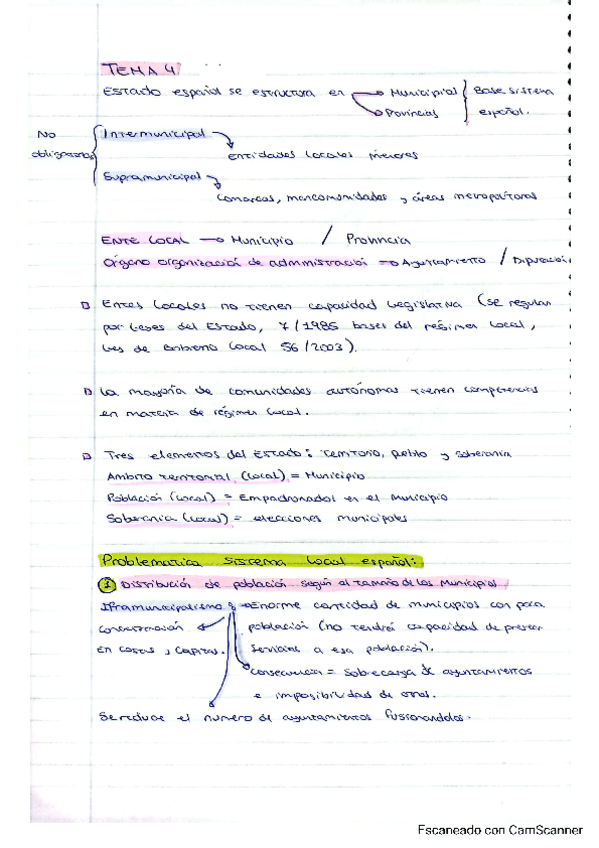 TEMA 4
Estado español se estructura en → Municipios } Base sistema
→ Provincias } español.
No obligatorias { Intermunicipal →
entidades locales menores
Supramunicipal →
comarcas, mancomunidades y áreas metropolitanas
ENTE LOCAL → Municipio / Provincia
Órgano organización de administración → Ayuntamiento / Diputación
Entes locales no tienen capacidad legislativa (se regulan
por leyes del Estado, 7/1985 bases del régimen local,
ley de gobierno local 56/2003).
La mayoría de comunidades autónomas tienen competencias
en materia de régimen local.
Tres elementos del Estado: territorio, pueblo y soberanía
Ámbito territorial (local) = Municipio
Población (local) = Empadronados en el municipio
Soberanía (local) = elecciones municipales
Problematica sistema local español:
1 Distribución de población según el tamaño de los municipios
Inframunicipalismo → Enorme cantidad de municipios con poca
concentración población (no tendrá capacidad de prestar
en costas y capitas. servicios a esa población).
consecuencia = sobrecarga de ayuntamientos
e imposibilidad de otros.
Se reduce el numero de ayuntamientos fusionandolos.
Escaneado con CamScanner